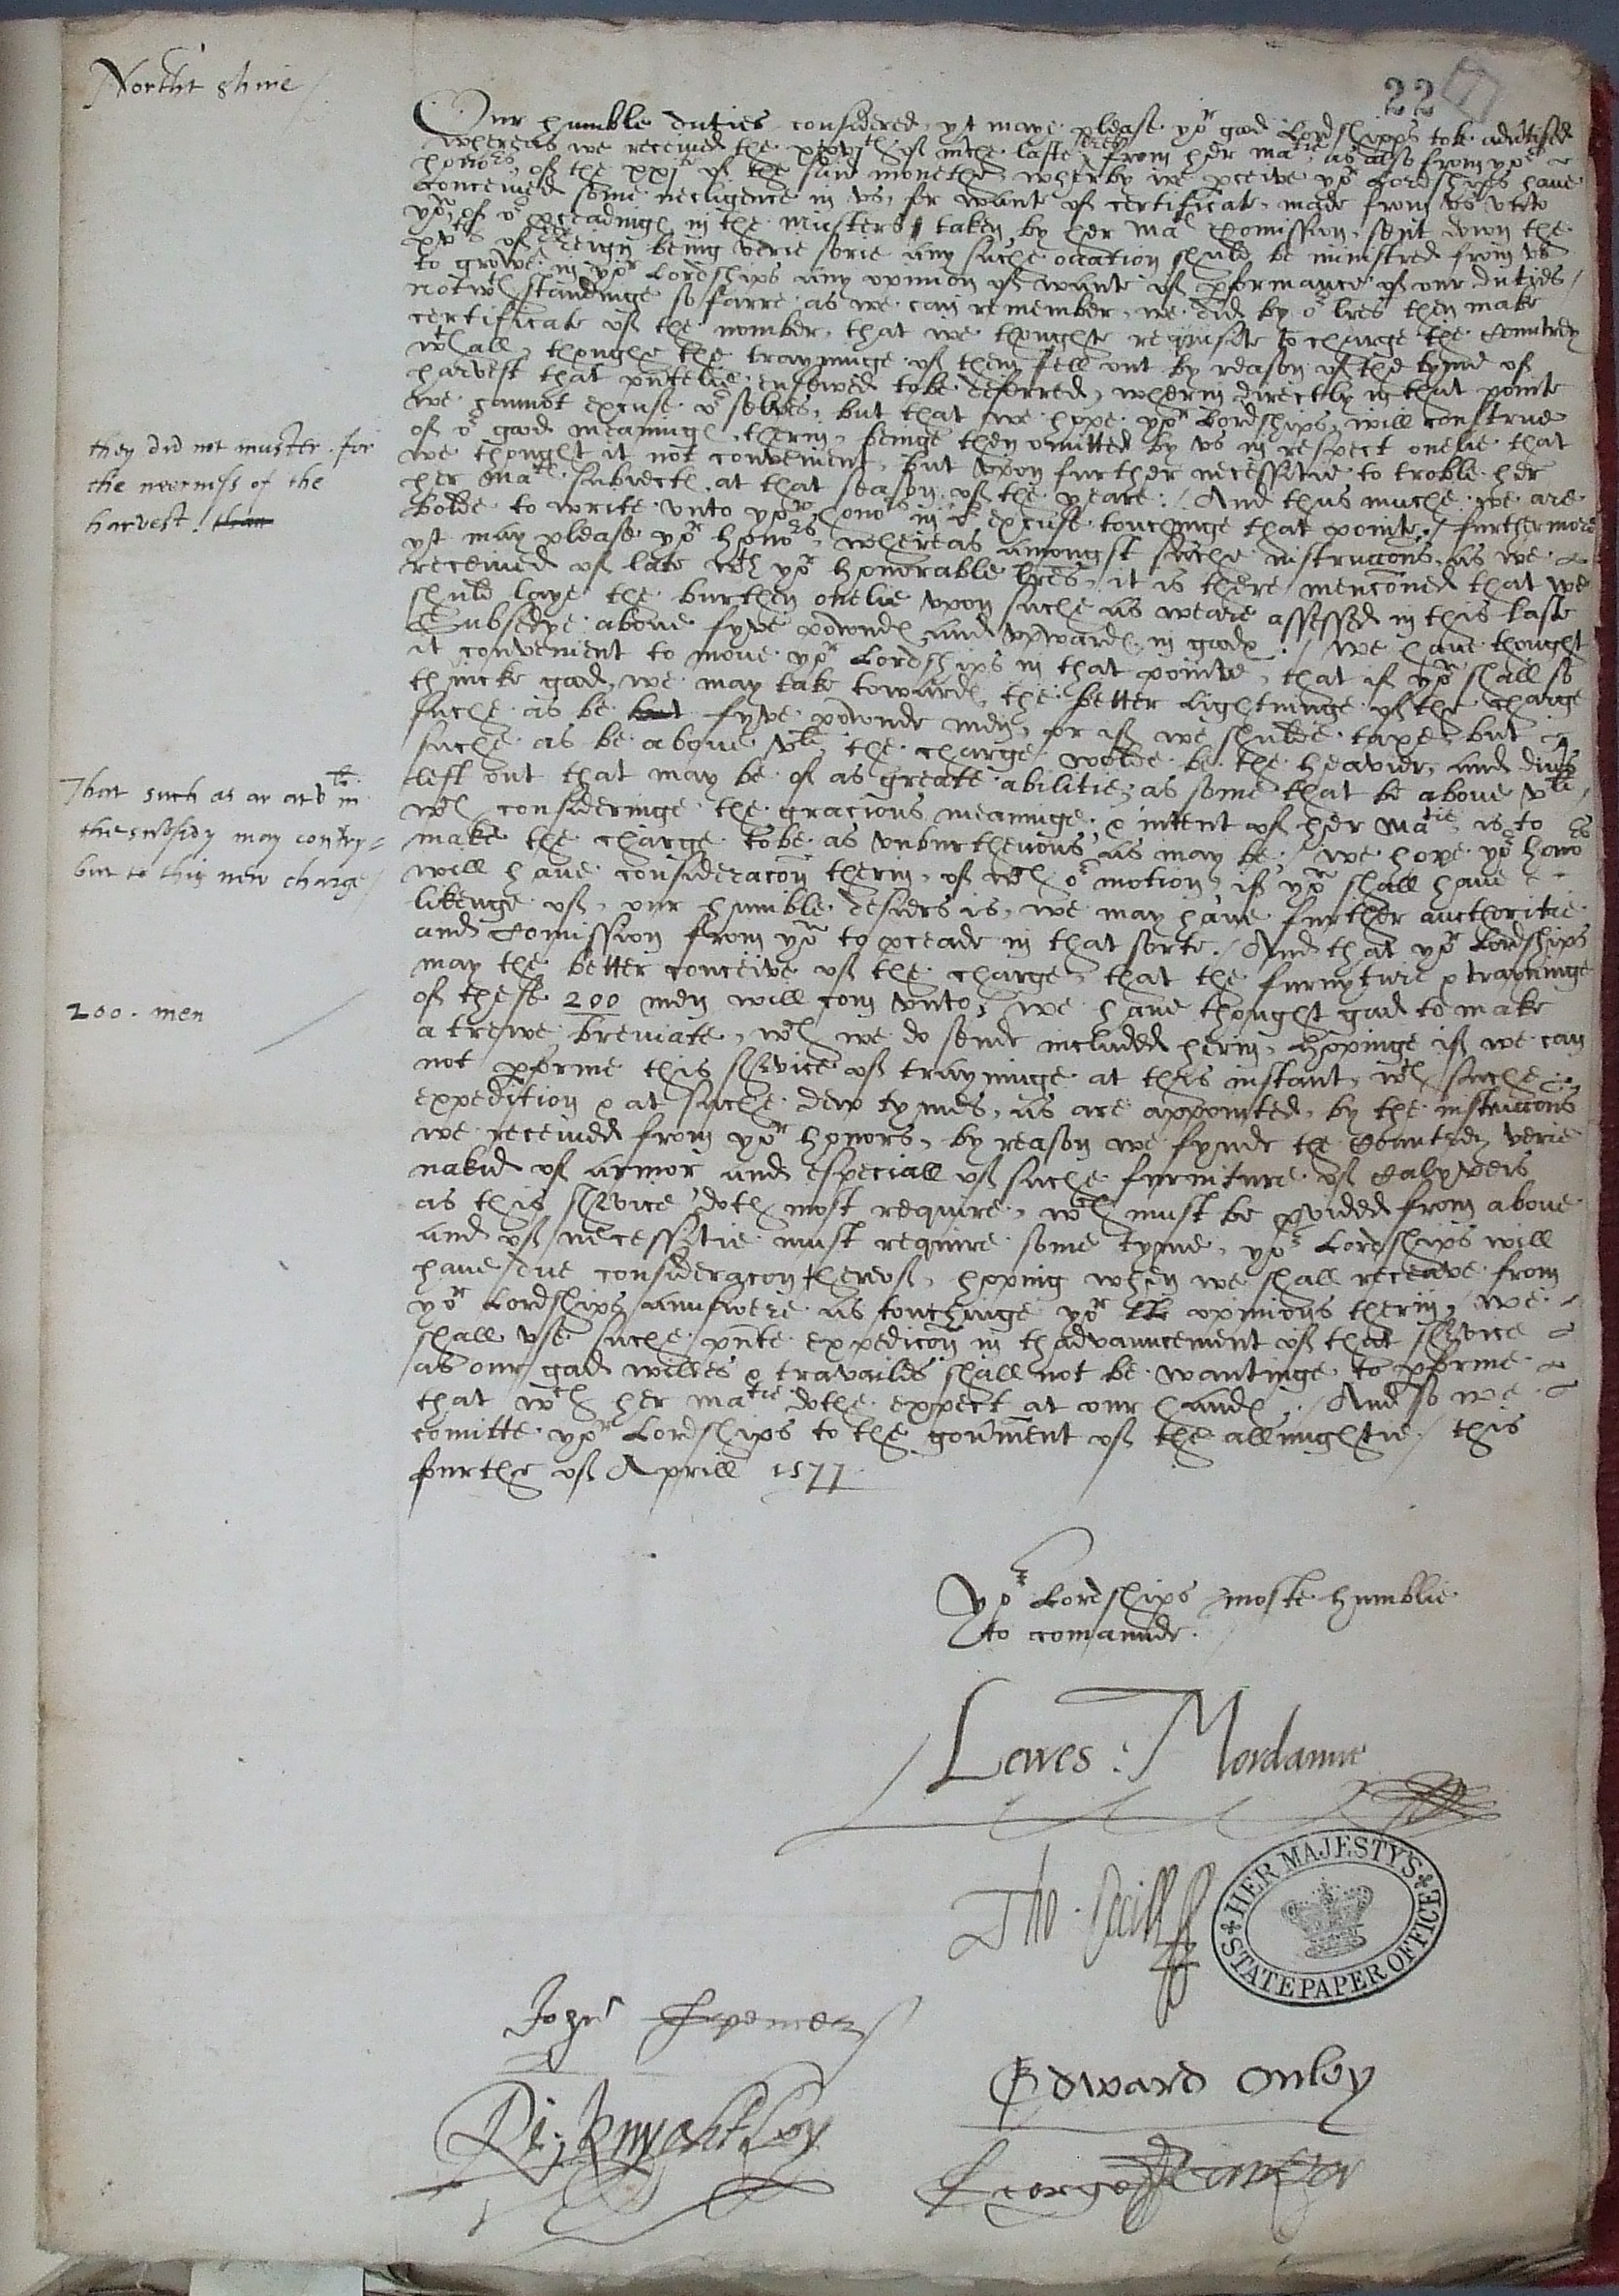 Northt shire
22
Our humble duties considered, yt maye please yor good Lordshipps to be advertised
whereas we receiued the xxvjth of m̃che laste lres from her matie as also from yor
honors of the xxjth of the said monethe, wherby we pceive yor Lordships have
Conceived some necligence in vs, for wante of certificate, made from vs vnto
yow, of or proceadinge in the Musters taken by her mats Comission, sent down the
xvth of her reign being verie sorie any suche occation shuld be ministred from vs
to growe in yor Lordships any opinion of wante of pformance of our duties /
notwth standinge so farre as we can remember, we did by or lres then make
certificate of the nomber, that we thoughte requisite to charge the Countrey
wth all, thoughe the trayninge of them fell out by reason of the tyme of
harvest that pñtelie ensewed to be deferred, wherin directly in that pointe
we cannot excuse or selves, but that we hope yor Lordships, will construe
of or good meaninge therin, beinge then omitted by vs in respect onelie that
we thought it not convenient, but vpon further necessitie to troble her
her Matie subiects at that season of the yeare. / And thus muche we are
bolde to write vnto yor honors in or excuse touchinge that pointe. / furthermore
yt may please yor honors, whereas amongst suche instrucc̃ons, as we
receiued of late wth yor honorable lres, it is there menc̃oned that we
shuld laye the burthen onelie vpon suche as weare assessed in this laste
Subsedye above fyve pownds and vpwards in goods. / We have thought
it convenient to move yor Lordships in that pointe, that if yow shall so
thincke good, we may take towards the better lightninge of the charge
suche as be but fyve pownde men, for if we shulde taxe but
suche as be above vli the charge wolde be the heavier, and divs
left out that may be of as greate abilitie, as some that be above vli,
wch consideringe the gracious meaninge & intent of her Matie is to
make the charge to be as vnburthenous as may be, / we hope yor honors
will have considerac̃on therin, of wch or motion, if yow shall have
likenge of, our humble desiers is, we may have further aucthoritie
and Comission from yow to pceade in that sorte. / And that yor Lordships
may the better conceive of the charge, that the furnyture & trayninge
of these 200 men will com vnto, we have thought good to make
a trewe breviate, wch we do sende included herin, hopinge if we can
not pforme this service of trayninge at this instant, wth suche
expedition & at suche dew tymes, as are appointed, by the instrucc̃ons
we receiued from yor honors, by reason we fynde the Countrey verie
naked of armor and especiall of suche furniture of Calyvers
as this service doth most require, wch must be pvided from above
and of necessitie must require some tyme, yor Lordships will
have due considerac̃on therof, hoping when we shall receave from
yor Lordships aunswere as touchinge yor opinions therin, we
shall vse suche pñte expedic̃on in thadvauncement of that service
as our good willes & travailes shall not be wantinge, to pforme
that wch her Matie dothe expect at our hands. / And so we
comitte yor Lordships to the goṽment of the allmightie / this
fourthe of Aprill 1577
they did not muster for
the neerness of the
harvest. than
That such as ar at vli in
the subsidy may contry=
but to this new charge /
200. men
Yor Lordships moste humblie
to comaunde.
Lewes: Mordaunt
Tho. Cecill
HER MAJESTY'S
STATE PAPER OFFICE
John Spencer
Edward Onley
Ri: Knyghtley
George